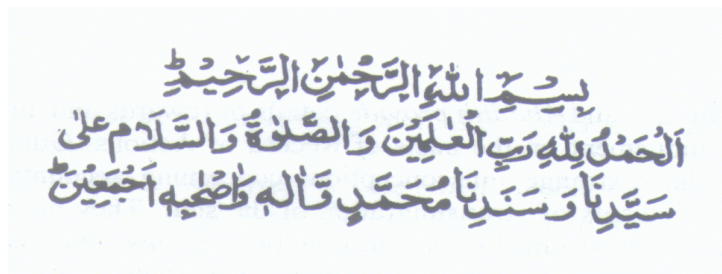 بِسْمِ اللّٰهِ الرَّحْمٰنِ الرَّحِيْمِؕ
اَلْحَمْدُ لِلّٰهِ رَبِّ الْعٰلَمِيْنَ وَالصَّلٰوةُ وَالسَّلَامُ عَلٰى
سَيِّدِنَا وَسَنَدِنَا مُحَمَّدٍ وَاٰلِهٖ وَاَصْحٰبِهٖ اَجْمَعِيْنَؕ